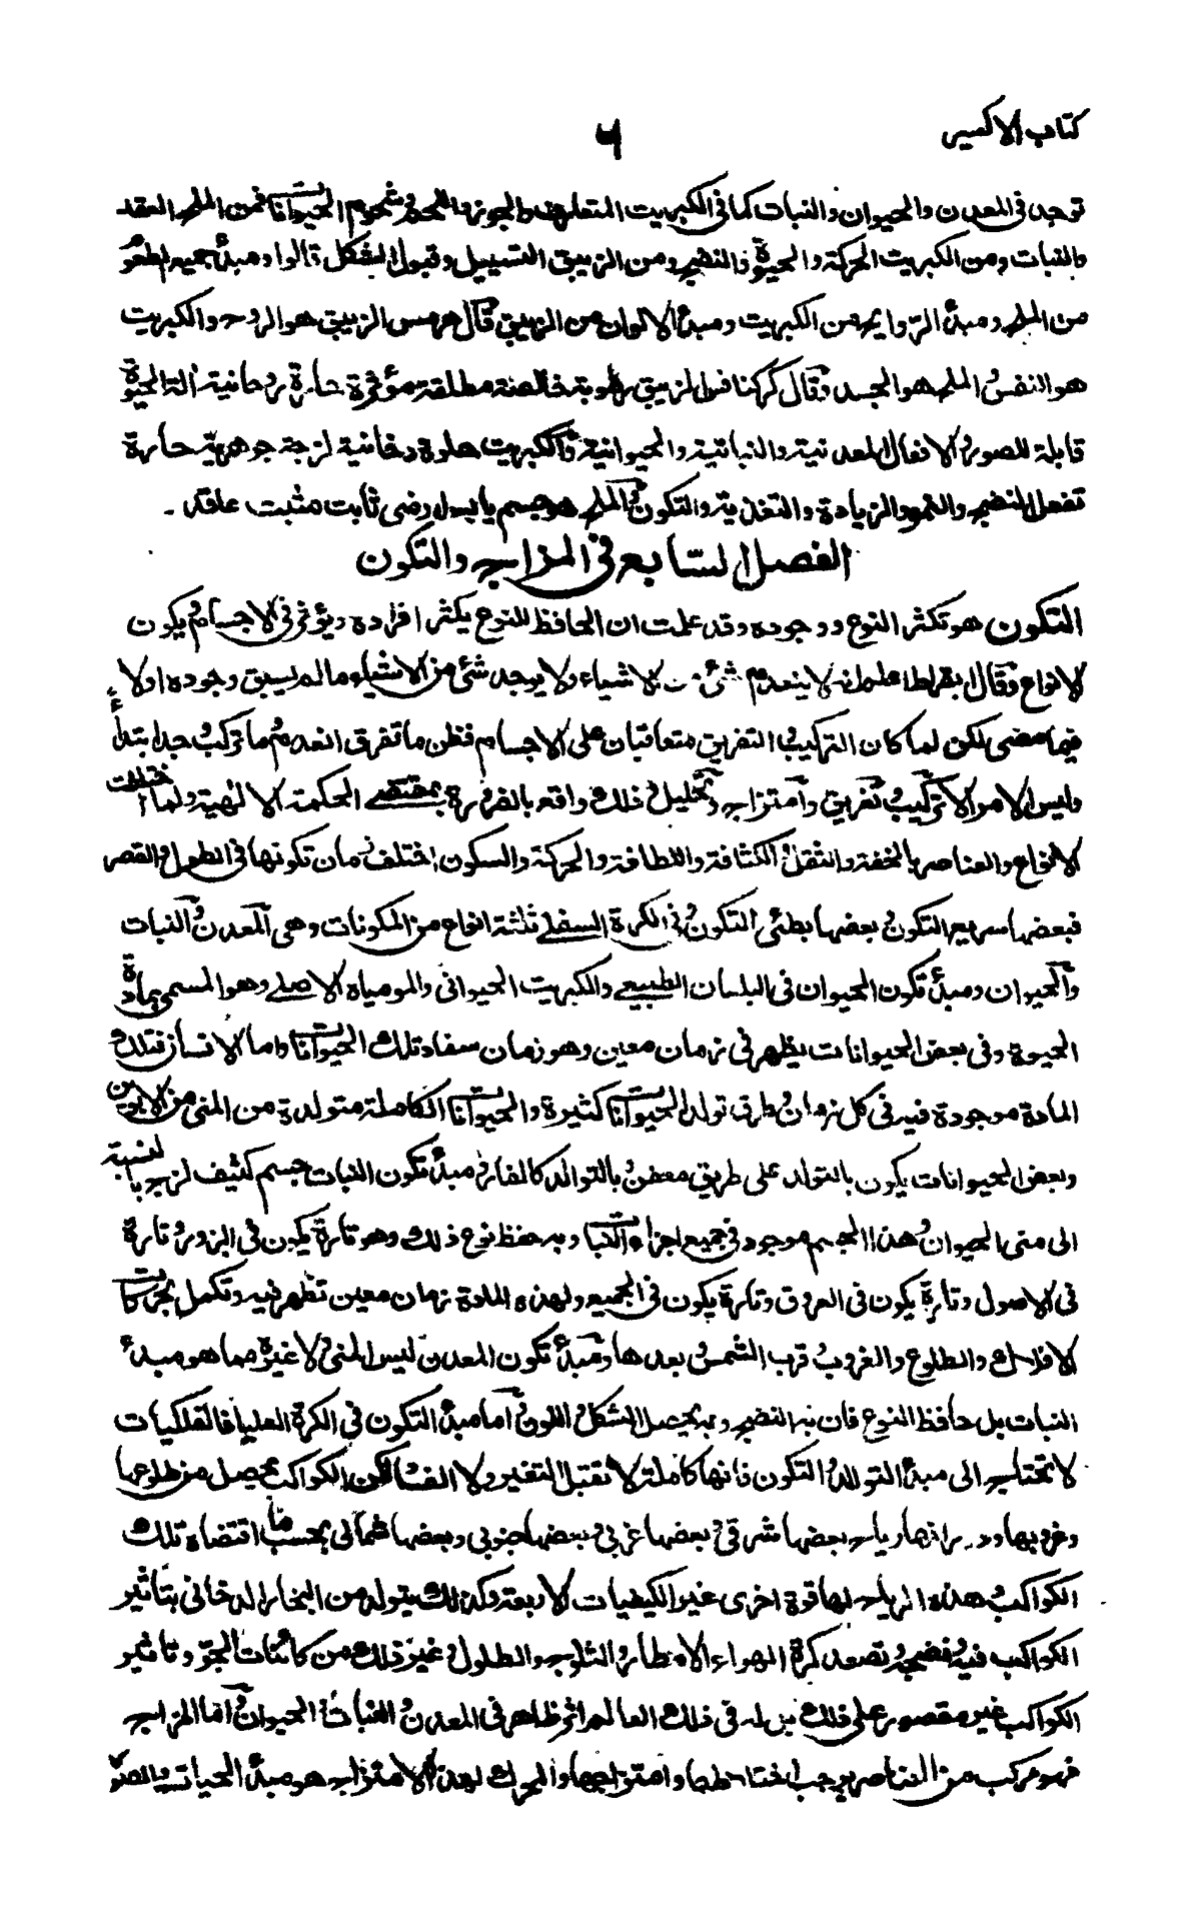 كتاب الاكسير
٦
توجد فى المعدن والحيوان والنبات كما فى الكبريت المتعارف والجوز واللحم وشحوم الحيوانات فمن الملح العقد
والثبات ومن الكبريت الحركة والحيوة والنضج ومن الزيبق التسييل وقبول الشكل قالوا ومبدأ جميع الطعوم
من الملح ومبدأ الروايح من الكبريت ومبدأ الالوان من الزيبق وقال هرمس الزيبق هو الروح والكبريت
هو النفس والملح هو الجسد وقال كركناقسوس الزيبق رطوبة خالصة مطلقة مؤثرة حارة روحانية آلة الحيوة
قابلة للصور والافعال المعدنية والنباتية والحيوانية والكبريت حلوة دخانية لزجة جوهرية حارة
تفعل النضج والنمو والزيادة والتغذية والتكون والملح هو جسم يابس ارضى ثابت مثبت عاقد .
الفصل السابع فى المزاج والتكون
التكون هو تكثر النوع ووجوده وقد علمت ان الحافظ للنوع يكثر افراده ويؤثر فى الاجسام ويكون
الانواع وقال بقراط اعلم انه لا ينعدم شئ من الاشياء ولا يوجد شئ من الاشياء ما لم يسبق وجوده اولا
فيما مضى لكن لما كان التركيب والتفريق متعاقبان على الاجسام فظن ما تفرق انعدم وما تركب جدا بتداءً
وليس الامر الا تركيب وتفريق وامتزاج وتحليل وذلك واقع بالضرورة بمقتضى الحكمة الالهية ولما اختلفت
الانواع والعناصر بالخفة والثقل والكثافة واللطافة والحركة والسكون اختلف زمان تكونها فى الطول والقصر
فبعضها سريع التكون وبعضها بطئ التكون وفى الكرة السفلى ثلثة انواع من المكونات وهى المعدن والنبات
والحيوان ومبدأ تكون الحيوان فى البلسان الطبيعى والكبريت الحيوانى والمومياه الاصلى وهو المسمى بمادة
الحيوة وفى بعض الحيوانات يظهر فى زمان معين وهو زمان سفاد تلك الحيوانات واما الانسان فتلك
المادة موجودة فيه فى كل زمان وطرق تولد الحيوانات كثيرة والحيوانات الكاملة متولدة من المنى من الابوين
وبعض الحيوانات يكون بالتولد على طريق معفن وبالتوالد كالفار ومبدأ تكون النبات جسم كثيف لزج بالنسبة
الى منى الحيوان وهذا الجسم موجود فى جميع اجزاء النبات وبه حفظ نوع ذلك وهو تارة يكون فى البزور وتارة
فى الاصول وتارة يكون فى العروق وتارة يكون فى الجميع ولهذه المادة زمان معين تظهر فيه وتكمل بحركات
الافلاك والطلوع والغروب وقرب الشمس وبعدها ومبدأ تكون المعدن ليس المنى ولا غيره مما هو مبدأ
النبات بل حافظ النوع فان به النضج وبه يحصل الشكل واللون واما مبدأ التكون فى الكرة العليا فالفلكيات
لا تحتاج الى مبدأ التولد والتكون فانها كاملة لا تقبل التغير ولا الفساد لكن الكواكب يحصل من طلوعها
وغروبها ودورانها رياح بعضها شرقى وبعضها غربى وبعضها جنوبى وبعضها شمالى بحسب ما اقتضاه تلك
الكواكب وهذه الرياح لها قوة اخرى غير الكيفيات الاربعة وكذلك يتولد من البخار الدخانى بتاثير
الكواكب فيه فضيج وتصعد كرة الهواء الامطار والثلوج والطلول وغير ذلك من كائنات الجو وتاثير
الكواكب غير مقصور على ذلك بل له فى ذلك العالم اثر ظاهر فى المعدن والنبات والحيوان واما المزاج
فهو مركب من العناصر يوجب اختلاطها وامتزاجها والمحرك لهذا الامتزاج هو مبدأ الحيات والصو